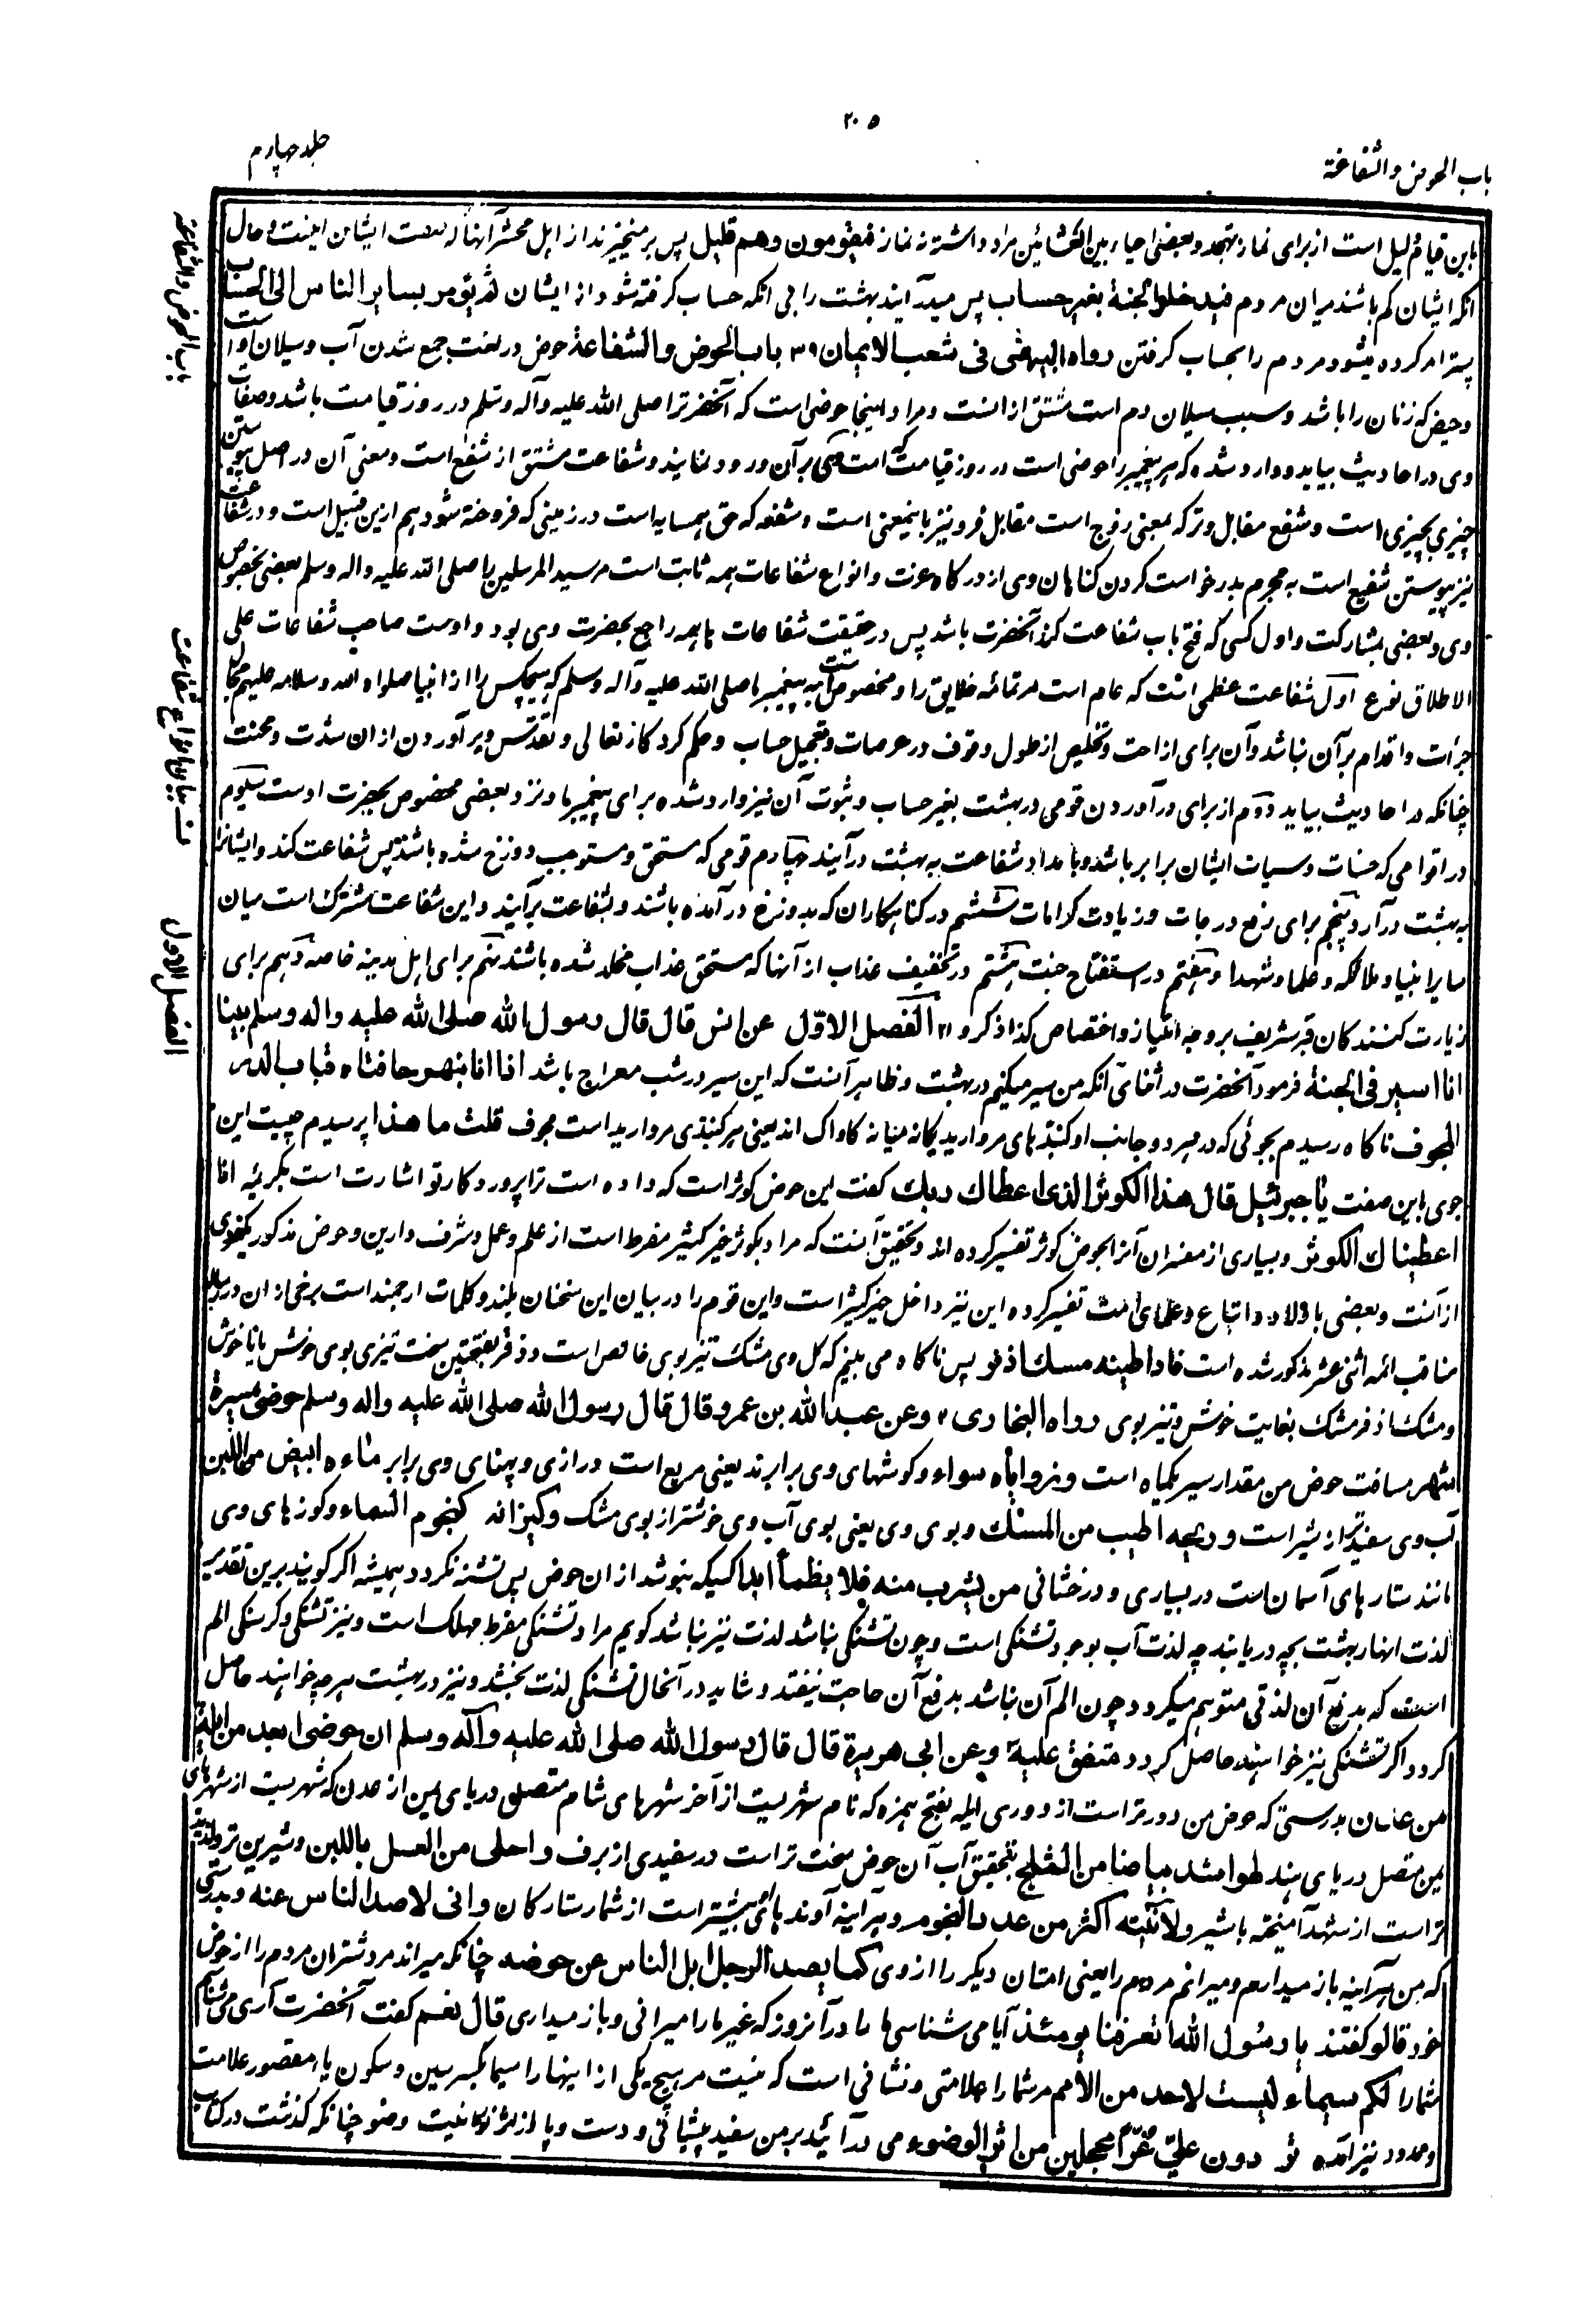 ۲۰۵
باب الحوض والشفاعة
جلد چهارم
باین قیام لیل است از برای نماز تهجد و بعضی احیاء بین العشائین مراد داشته نه نماز فیقومون وهم قلیل پس بر میخیزند از اهل محشر آنها که صفت ایشان اینست و حال
انکه ایشان کم باشند میان مردم فیدخلوا الجنة بغیر حساب پس میدرآیند بهشت را بی انکه حساب گرفته شود از ایشان ثم یؤمر بسایر الناس الی الحساب
پستر امر کرده میشود مردم را بحساب گرفتن رواه البیهقی فی شعب الایمان ۳۹ باب الحوض والشفاعة حوض در لغت جمع شدن آب و سیلان اوست
وحیض که زنان را باشد و سبب سیلان دم است مشتق از انست و مراد اینجا حوضی است که آنحضرت را صلی الله علیه وآله وسلم در روز قیامت باشد و صفات
وی در احادیث بیاید و وارد شده که هر پیغمبر را حوضی است در روز قیامت که امت وی بر آن ورود نمایند و شفاعت مشتق از شفع است و معنی آن در اصل پیوستن
چیزی بچیزی است و شفع مقابل وتر که بمعنی زوج است مقابل فرد نیز باینمعنی است و شفعه که حق همسایه است در زمینی که فروخته شود هم ازین قبیل است و در شفاعت
نیز پیوستن شفیع است به مجرم بدرخواست کردن گناهان وی از درگاه عزت و انواع شفاعات همه ثابت است مر سید المرسلین را صلی الله علیه واله وسلم بعضی بخصوص
وی و بعضی بمشارکت و اول کسی که فتح باب شفاعت کند آنحضرت باشد پس در حقیقت شفاعات ما همه راجع بحضرت وی بود و اوست صاحب شفاعات علی
الاطلاق نوع اول شفاعت عظمی است که عام است مر تمامه خلایق را و مخصوص است به پیغمبر ما صلی الله علیه وآله وسلم که هیچکس را از انبیا صلوات الله وسلامه علیهم مجال
جرأت و اقدام بر آن نباشد و آن برای ازاحت و تخلیص از طول وقوف در عرصات و تعجیل حساب و حکم کردگار تعالی و تقدس و بر آوردن از ان شدت و محنت
چنانکه در احادیث بیاید دوم از برای در آوردن قومی در بهشت بغیر حساب و ثبوت آن نیز وارد شده برای پیغمبر ما و نزد بعضی مخصوص بحضرت اوست سیوم
در اقوامی که حسنات و سیات ایشان برابر باشد و بامداد شفاعت به بهشت درآیند چهارم قومی که مستحق و مستوجب دوزخ شده باشند پس شفاعت کند و ایشانرا
به بهشت درآرد پنجم برای رفع درجات و زیادت کرامات ششم در گناهکاران که بدوزخ درآمده باشند و بشفاعت برآیند و این شفاعت مشترک است میان
سایر انبیا و ملائکه و علما و شهدا و هفتم در استفتاح جنت هشتم در تخفیف عذاب از آنها که مستحق عذاب مخلد شده باشند نهم برای اهل مدینه خاصه دهم برای
زیارت کنندگان قبر شریف بر وجه امتیاز و اختصاص کذا ذکروا ۱۲ الفصل الاول عن انس قال قال رسول الله صلی الله علیه واله وسلم بینا
انا اسیر فی الجنة فرمود آنحضرت در اثنای آنکه من سیر میکنم در بهشت و ظاهر آنست که این سیر در شب معراج باشد اذا انا بنهر حافتاه قباب الدر
المجوف ناگاه رسیدم بجوئی که در هر دو جانب او گنبدهای مروارید یگانه میانه کاواک اند یعنی هر گنبدی مروارید است مجوف قلت ما هذا پرسیدم چیست این
جوی باین صفت یا جبرئیل قال هذا الکوثر الذی اعطاک ربک گفت این حوض کوثر است که داده است ترا پروردگار تو اشارت است بکریمه انا
اعطیناک الکوثر و بسیاری از مفسران آنرا بحوض کوثر تفسیر کرده اند و تحقیق آنست که مراد بکوثر خیر کثیر مفرط است از علم و عمل و شرف دارین و حوض مذکور یکفردی
از آنست و بعضی باولاد و اتباع و علمای امت تفسیر کرده این نیز داخل خیر کثیر است و این قوم را در بیان این سخنان بلند و کلمات ارجمند است برخی از ان در رساله
مناقب ائمه اثنی عشر مذکور شده است فاذا طینه مسک اذفر پس ناگاه می بینم که گل وی مشک تیز بوی خالص است و ذفر بفتحتین سخت تیزی بوی خوش یا ناخوش
و مشک اذفر مشک بغایت خوش و تیز بوی رواه البخاری ۲ وعن عبد الله بن عمرو قال قال رسول الله صلی الله علیه واله وسلم حوضی مسیرة
شهر مسافت حوض من مقدار سیر یکماه است و زوایاه سواء و گوشهای وی برابرند یعنی مربع است درازی و پهنای وی برابر ماءه ابیض من اللبن
آب وی سفیدتر از شیر است و ریحه اطیب من المسک و بوی وی یعنی بوی آب وی خوشتر از بوی مشک و کیزانه کنجوم السماء و کوزهای وی
مانند ستارهای آسمان است در بسیاری و درخشانی من یشرب منه فلا یظمأ ابدا کسیکه بنوشد از ان حوض پس تشنه نگردد همیشه اگر گویند برین تقدیر
لذت انهار بهشت بچه دریابند چه لذت آب بوجود تشنگی است و چون تشنگی نباشد لذت نیز نباشد گویم مراد تشنگی مفرط مهلک است و نیز تشنگی و گرسنگی الم
است که بدفع آن لذتی متوهم میگردد چون الم آن نباشد بدفع آن حاجت نیفتد و شاید در آنحال تشنگی لذت بخشد و نیز در بهشت هرچه خواهند حاصل
گردد اگر تشنگی نیز خواهند حاصل گردد متفق علیه ۳ وعن ابی هریرة قال قال رسول الله صلی الله علیه وآله وسلم ان حوضی ابعد من ایلة
من عدن بدرستی که حوض من دورتر است از دوری ایله بفتح همزه که نام شهریست از آخر شهرهای شام متصل دریای یمن از عدن که شهریست از شهرهای
یمن متصل دریای هند لهو اشد بیاضا من الثلج بتحقیق آب آن حوض سخت تر است در سفیدی از برف واحلی من العسل باللبن و شیرین تر و لذیذ
تر است از شهد آمیخته باشیر ولآنیته اکثر من عدد النجوم و هر آینه آوندهای بیشتر است از شمار ستارگان وانی لاصد الناس عنه و بدرستی
که من هر آینه باز میدارم و میرانم مردم را یعنی امتان دیگر را از وی کما یصد الرجل ابل الناس عن حوضه چنانکه میراند مرد شتران مردم را از حوض
خود قالو گفتند یا رسول الله اتعرفنا یومئذ آیا می شناسی ما را در آنروز که غیر ما را میرانی و باز میداری قال نعم گفت آنحضرت آری می شناسم
شمارا لکم سیماء لیست لاحد من الامم مر شما را علامتی و نشانی است که نیست مر هیچ یکی از اینها را سیما بکسر سین و سکون یا مقصور علامت
و ممدود نیز آمده تردون علیّ غرّا محجلین من اثر الوضوء می درآئید بر من سفید پیشانی و دست و پا از اثر نورانیت وضو چنانکه گذشت در کتاب
باب الحوض والشفاعة
بیان انواع شفاعت
الفصل الاول